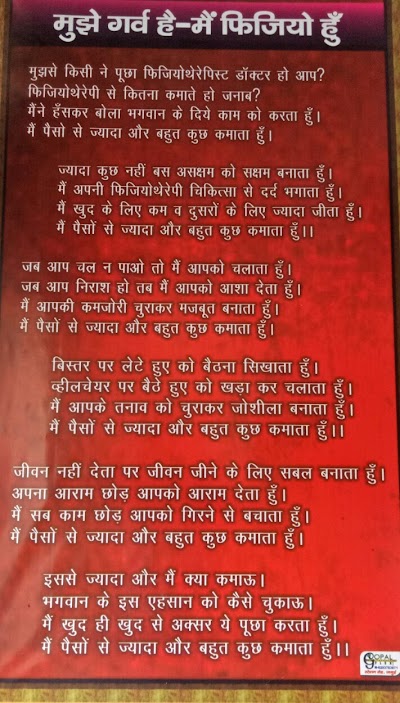 मुझे गर्व है-मैं फिजियो हुँ
मुझसे किसी ने पूछा फिजियोथेरेपिस्ट डॉक्टर हो आप?
फिजियोथेरेपी से कितना कमाते हो जनाब?
मैंने हँसकर बोला भगवान के दिये काम को करता हुँ।
मैं पैसो से ज्यादा और बहुत कुछ कमाता हुँ।
ज्यादा कुछ नहीं बस असक्षम को सक्षम बनाता हुँ।
मैं अपनी फिजियोथेरेपी चिकित्सा से दर्द भगाता हुँ।
मैं खुद के लिए कम व दुसरों के लिए ज्यादा जीता हुँ।
मैं पैसों से ज्यादा और बहुत कुछ कमाता हुँ।।
जब आप चल न पाओ तो मैं आपको चलाता हुँ।
जब आप निराश हो तब मैं आपको आशा देता हुँ।
मैं आपकी कमजोरी चुराकर मजबूत बनाता हुँ।
मैं पैसों से ज्यादा और बहुत कुछ कमाता हुँ।
बिस्तर पर लेटे हुए को बैठना सिखाता हुँ।
व्हीलचेयर पर बैठे हुए को खड़ा कर चलाता हुँ।
मैं आपके तनाव को चुराकर जोशीला बनाता हुँ।
मैं पैसों से ज्यादा और बहुत कुछ कमाता हुँ।।
जीवन नहीं देता पर जीवन जीने के लिए सबल बनाता हुँ।
अपना आराम छोड़ आपको आराम देता हुँ।
मैं सब काम छोड़ आपको गिरने से बचाता हुँ।
मैं पैसों से ज्यादा और बहुत कुछ कमाता हुँ।
इससे ज्यादा और मैं क्या कमाऊ।
भगवान के इस एहसान को कैसे चुकाऊ।
मैं खुद ही खुद से अक्सर ये पूछा करता हुँ।
मैं पैसों से ज्यादा और बहुत कुछ कमाता हुँ।।
GOPAL